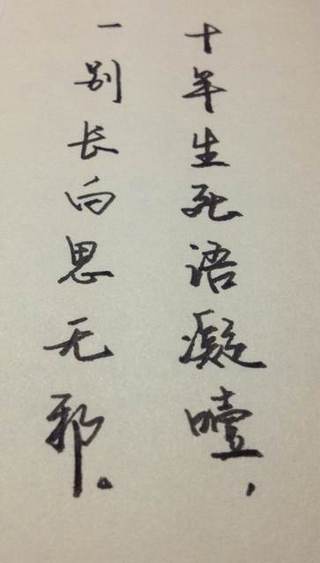 十年生死语凝噎，
一别长白思无邪。